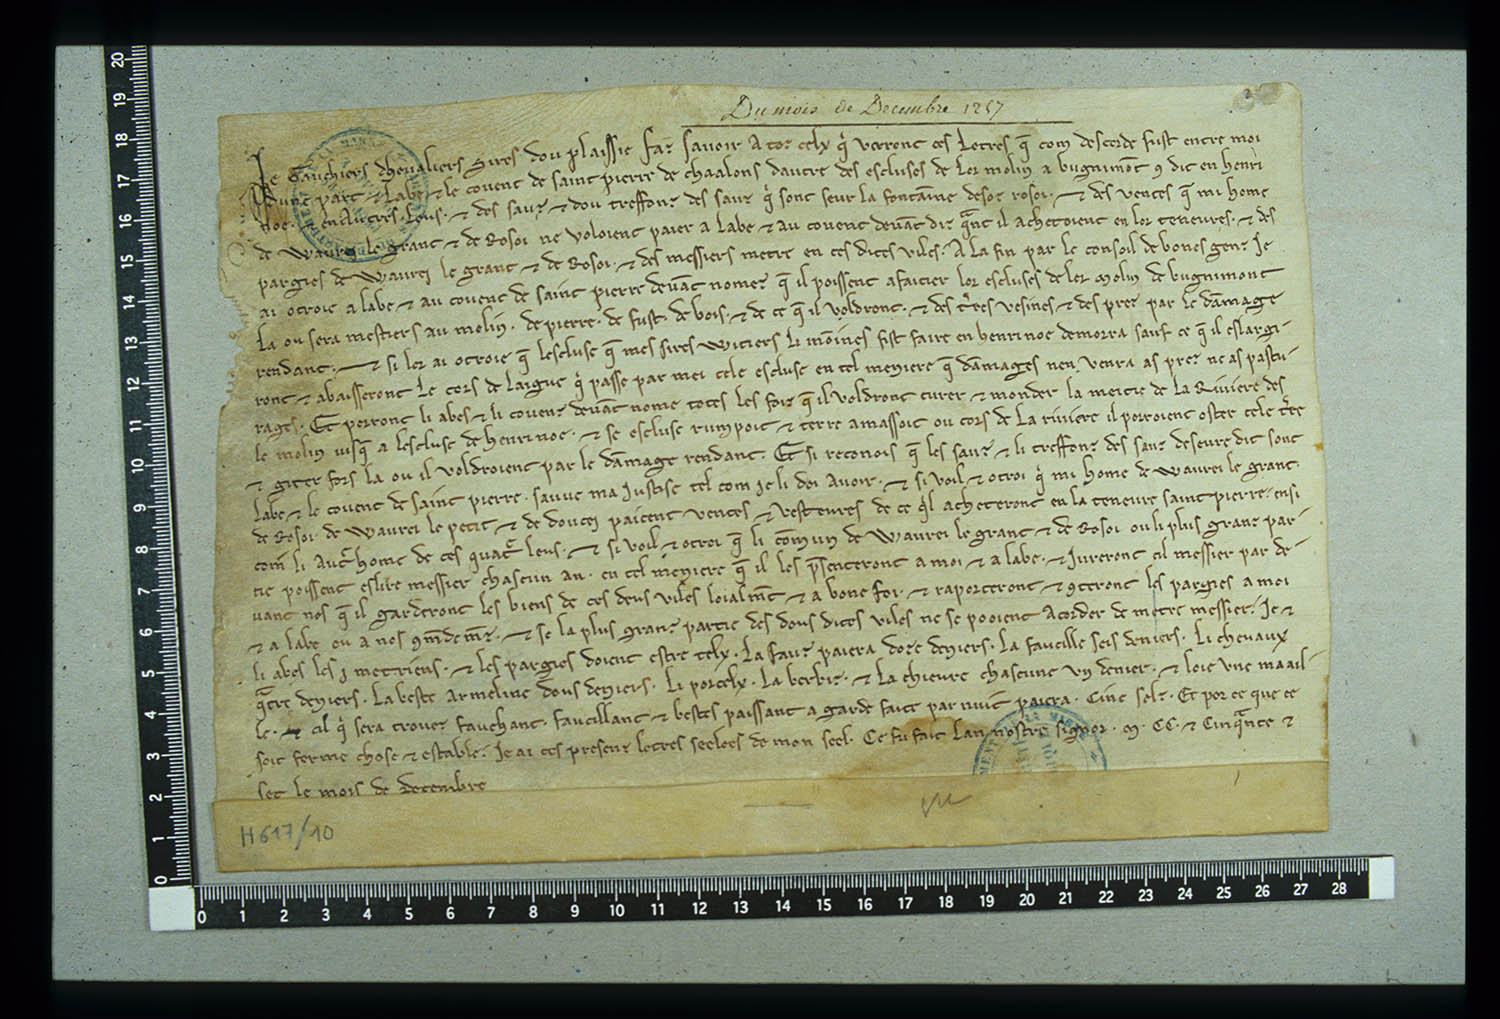 Du mois de Decembre 1257
Je Gauchiers chevaliers sires dou plaissie faz savoir a toz celx q̓ verront ces letres q̄ com descorde fust entre moi
dune part ⁊ labe ⁊ le covent de saint pierre de chaalons dautre des escluses de lor molin a bugnimōt ꝯ dit en henri
noe . ⁊ en autres leus . ⁊ des sauz ⁊ dou treffonz des sauz q̓ sont seur la fontainne desoz rosoi . ⁊ des ventes q̄ mi home
de Waurei le grant ⁊ de Rosoi ne voloient paier a labe ⁊ au covent devāt diz q̄nt il achetoient en lor teneures . ⁊ des
pargies de Waurei le grant ⁊ de Rosoi . ⁊ des messiers metre en ces dites viles . A la fin par le consoil de bones genz Je
ai otroie a labe ⁊ au covent de saint pierre devāt nomez q̄ il poissent afaitier lor escluses de lor molin de bugnimont
la ou sera mestiers au molin . de pierre . de fust . de bois . ⁊ de ce q̄ il voldront . ⁊ des t̓res vesines ⁊ des prez par le dāmage
rendant . ⁊ si lor ai otroie q̄ lescluse q̄ mes sires Witiers li moines fist faire en henrinoe demorra sauf ce q̄ il eslargi-
ront ⁊ abaisseront le cors de laigue q̓ passe par mei cele escluse en tel meniere q̄ dāmages nen venra as prez ne as pastu-
rages . Et porront li abes ⁊ li covenz devāt nome totes les foiz q̄ il voldront curer ⁊ monder la meitie de la Riviere des
le molin iusq̄ a lescluse de henrinoe . ⁊ se escluse rumpoit ⁊ terre amassoit ou cors de la riviere il porroient oster cele t̓re
⁊ giter fors la ou il voldroient par le dāmage rendant . Et si reconois q̄ les sauz ⁊ li treffonz des sauz deseure dit sont
labe ⁊ le covent de saint pierre . sauve ma Justise tel com je li doi avoir . ⁊ si voil ⁊ otroi q̓ mi home de Waurei le grant .
de Rosoi . de Waurei le petit ⁊ de doucei paient ventes ⁊ vesteures de ce q̓l acheteront en la teneure saint pierre . ensi
com li aut̓ home de ces quat̓ leus . ⁊ si voil ⁊ otroi q̄ li comun de Waurei le grant ⁊ de Rosoi ou li plus granz par-
tie poissent eslire messier chascun an . en tel meniere q̄ il les p̄senteront a moi ⁊ a labe . ⁊ Jureront cil messier par de-
vant nos q̄ il garderont les biens de ces deus viles loialmt̄ ⁊ a bone foi . ⁊ raporteront ⁊ ꝯteront les pargies a moi
⁊ a labe ou a nos ꝯm̄demz̄ . ⁊ se la plus granz partie des dous dites viles ne se pooient acorder de metre messier . Je ⁊
li abes les i metriens . ⁊ les pargies doient estre telx . La fauz paiera doze deniers . La faucille seis deniers . Li chevaux
q̄tre deniers . La beste armeline dous deniers . Li porcelx . La berbiz . ⁊ la chievre chascune vn denier . ⁊ loie vne maail-
le . ⁊ cil q̓ sera trovez fauchant . faucillant ⁊ bestes paissant a garde faite par nuit paiera . Cinc solz . Et por ce que ce
soit ferme chose ⁊ estable . Je ai ces presenz letres seelees de mon seel . Ce fu fait lan nostre signor . M . CC . ⁊ Cinq̄nte ⁊
set le mois de decembre
H 617/10